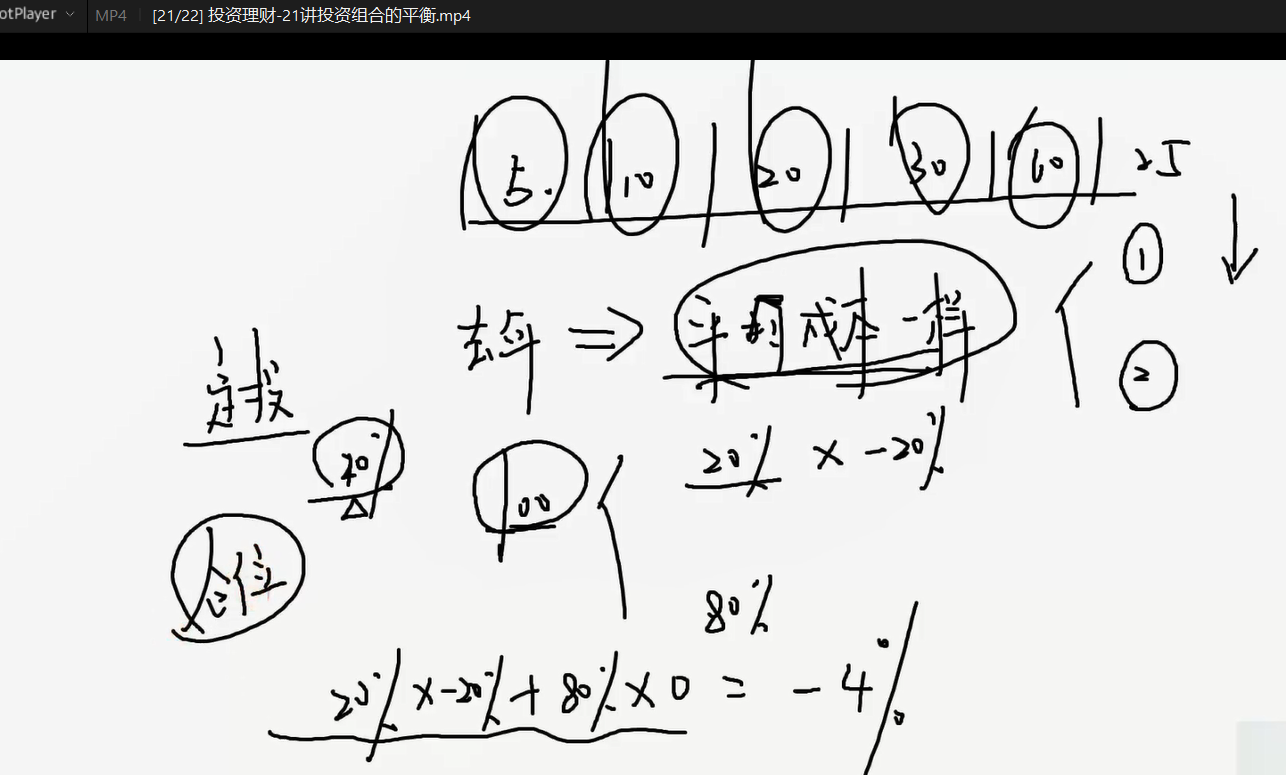 otPlayer MP4 [21/22] 投资理财-21讲投资组合的平衡.mp4
5. 10 20 30 60 25
①
去年 ⇒ 平均成本一样
②
定投
20% × -20%
100
仓位
80%
20% × -20% + 80% × 0 = -4%